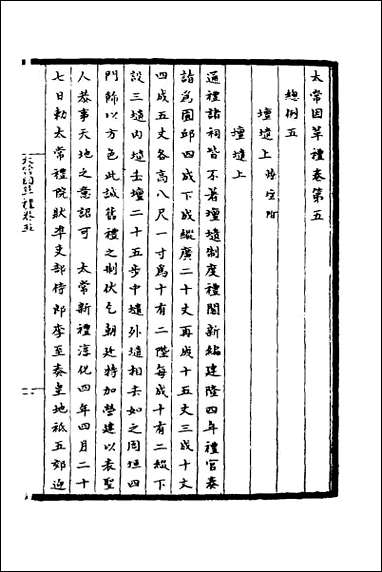 太常因革禮卷第五
總例五
壇壝上
壇壝上
通禮諸祠皆不著壇壝制度禮閣新編建隆四年禮官奏
請為圜邱四成下成縱廣二十丈再成十五丈三成十丈
四成五丈各高八尺一寸為十有二陛每成十有二綴下
設三壝内壝去壇二十五步中壝外壝相去如之周垣四
門飾以方色此誠舊禮之制伏乞朝廷特加營建以表聖
人恭事天地之意詔可 太常新禮淳化四年四月二十
七日勅太常禮院狀準吏部侍郎李至奏皇地祗五郊迎
太常因革禮卷五